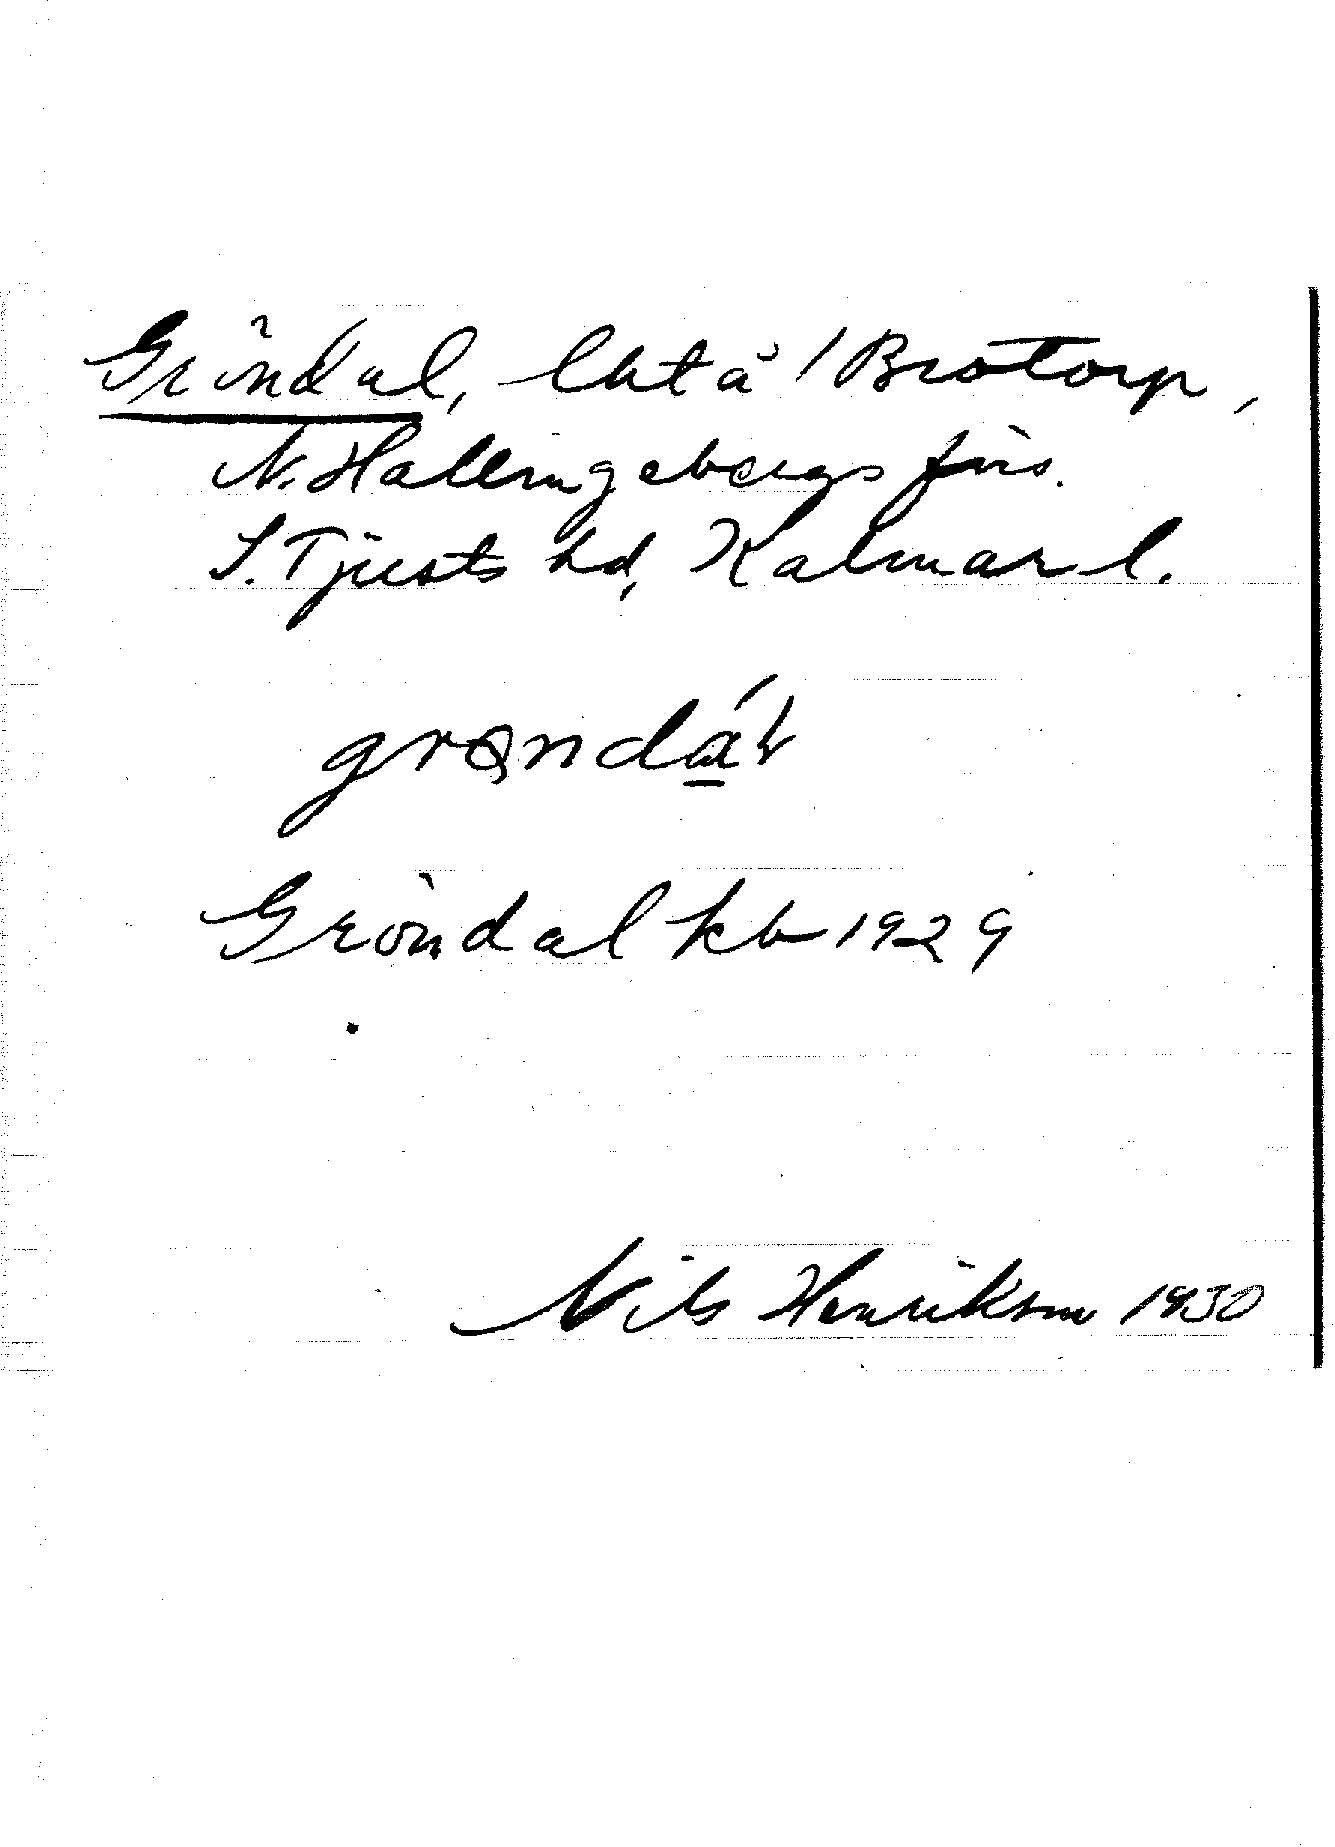 Gröndal, lht å 1 Brotorp,
N. Hallingebergs förs.
S. Tjusts hd, Kalmar l.
grøndál
Gröndal kb 1929
Nils Henrikson 1930